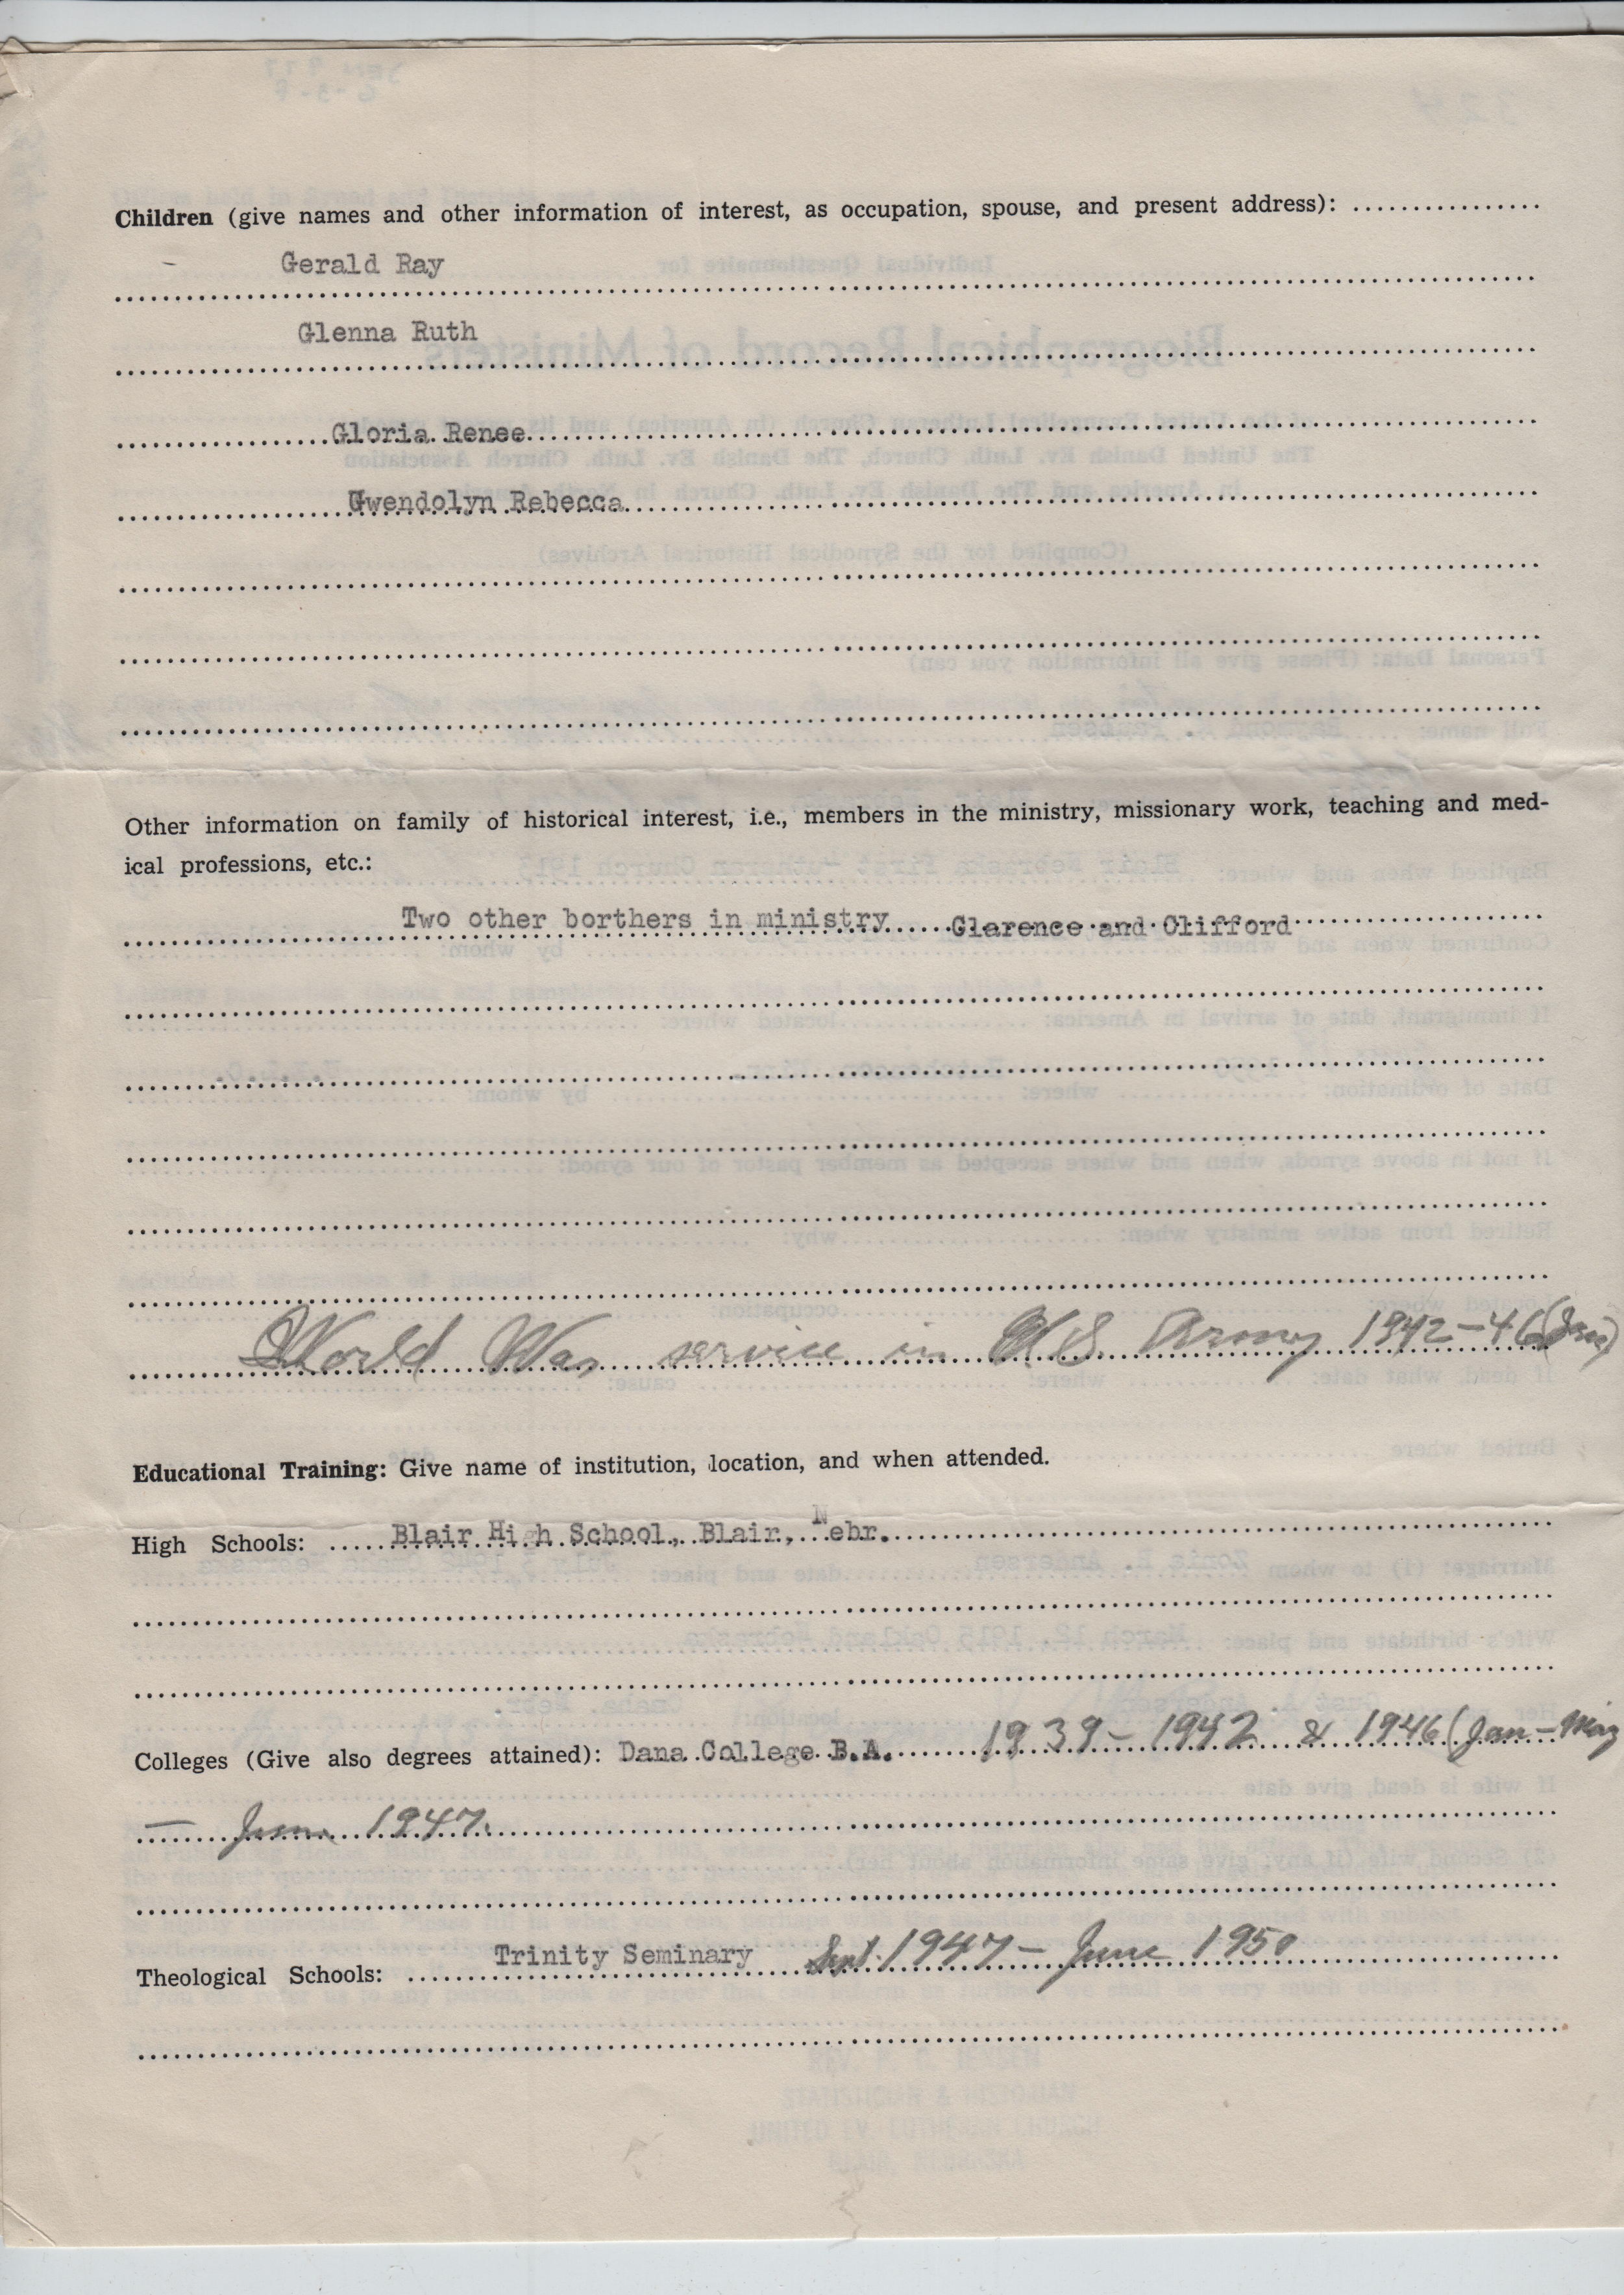 Children (give names and other information of interest, as occupation, spouse, and present address):
Gerald Ray
Glenna Ruth
Gloria Renee
Gwendolyn Rebecca
Other information on family of historical interest, i.e., members in the ministry, missionary work, teaching and med-
ical professions, etc.:
Two other borthers in ministry Clarence and Clifford
World War service in U.S. Army 1942-46 (Jan)
Educational Training: Give name of institution, location, and when attended.
High Schools: Blair High School, Blair, Nebr.
Colleges (Give also degrees attained): Dana College B.A. 1939-1942 & 1946 (Jan-May
— June 1947.
Theological Schools: Trinity Seminary Sept. 1947- June 1950